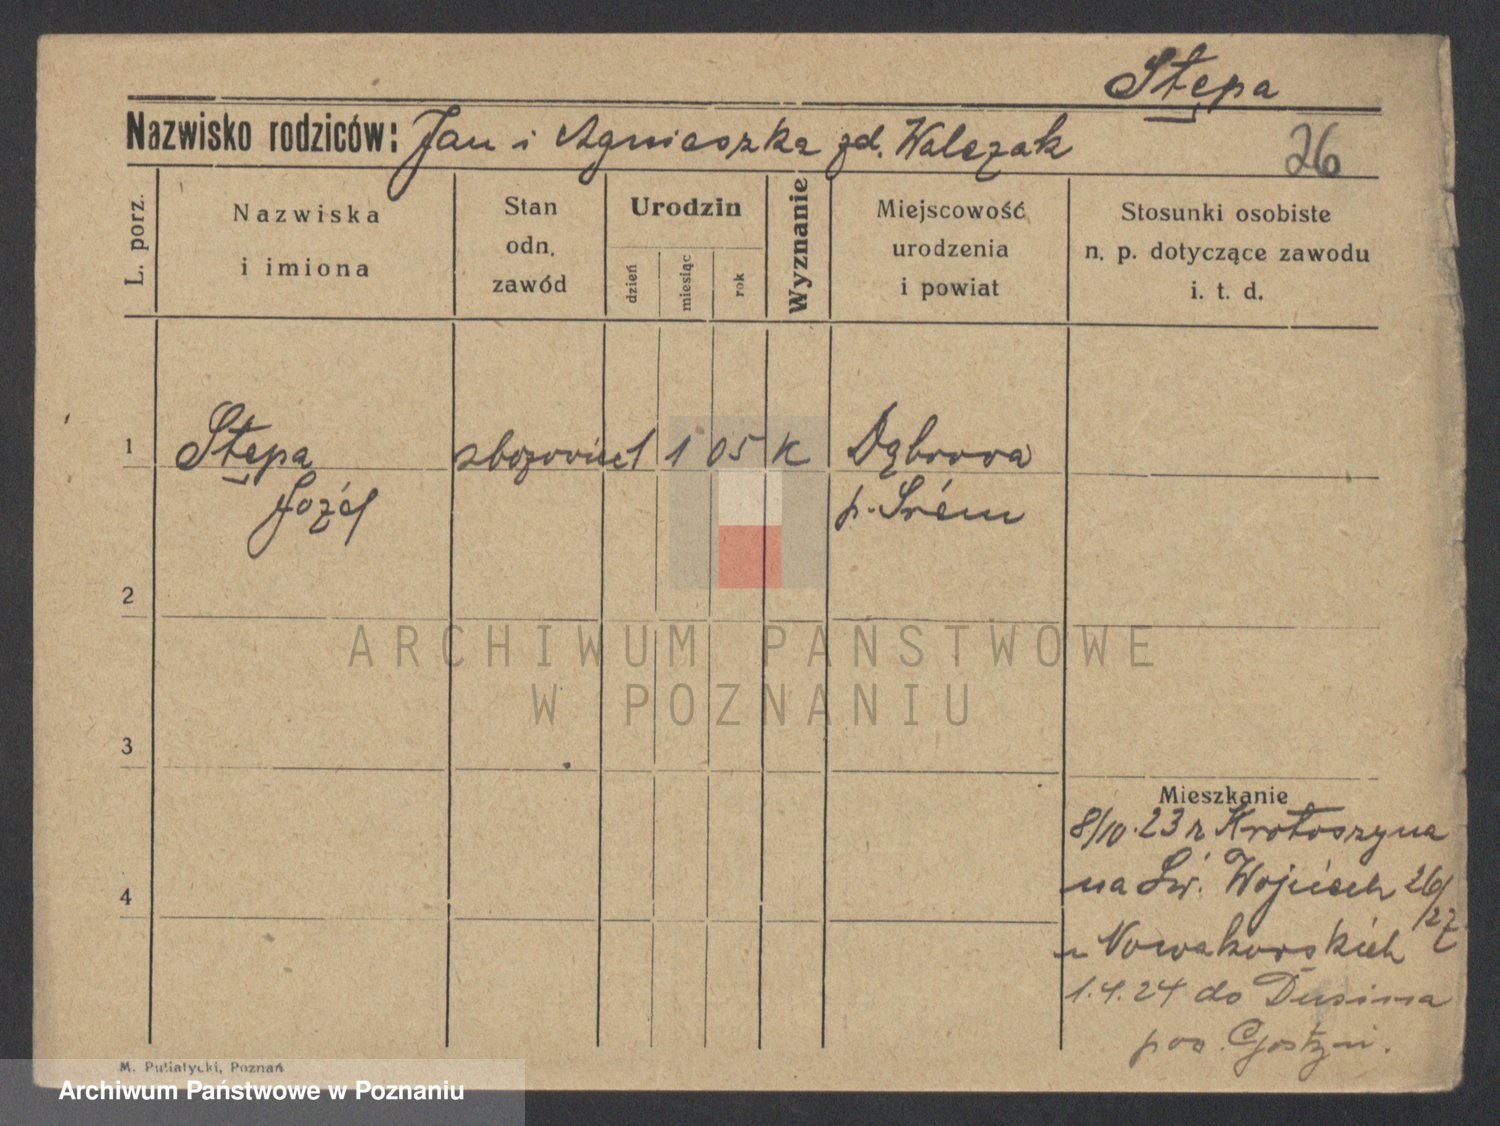 Stępa
Nazwisko rodziców: Jan i Agnieszka zd. Walczak
26
L. porz.
Nazwiska
i imiona
Stan
odn.
zawód
Urodzin
dzień
miesiąc
rok
Wyznanie
Miejscowość
urodzenia
i powiat
Stosunki osobiste
n. p. dotyczące zawodu
i. t. d.
1 Stępa zbożowiec 1 1 05 K Dąbrowa
Józef p. Śrem
2
ARCHIWUM PAŃSTWOWE
W POZNANIU
3
Mieszkanie
8/10.23 z Krotoszyna
na Św. Wojciech 26/27
u Nowakowskich
4
1.4.24 do Dusina
pow. Gostyń.
M. Putiatycki, Poznań
Archiwum Państwowe w Poznaniu